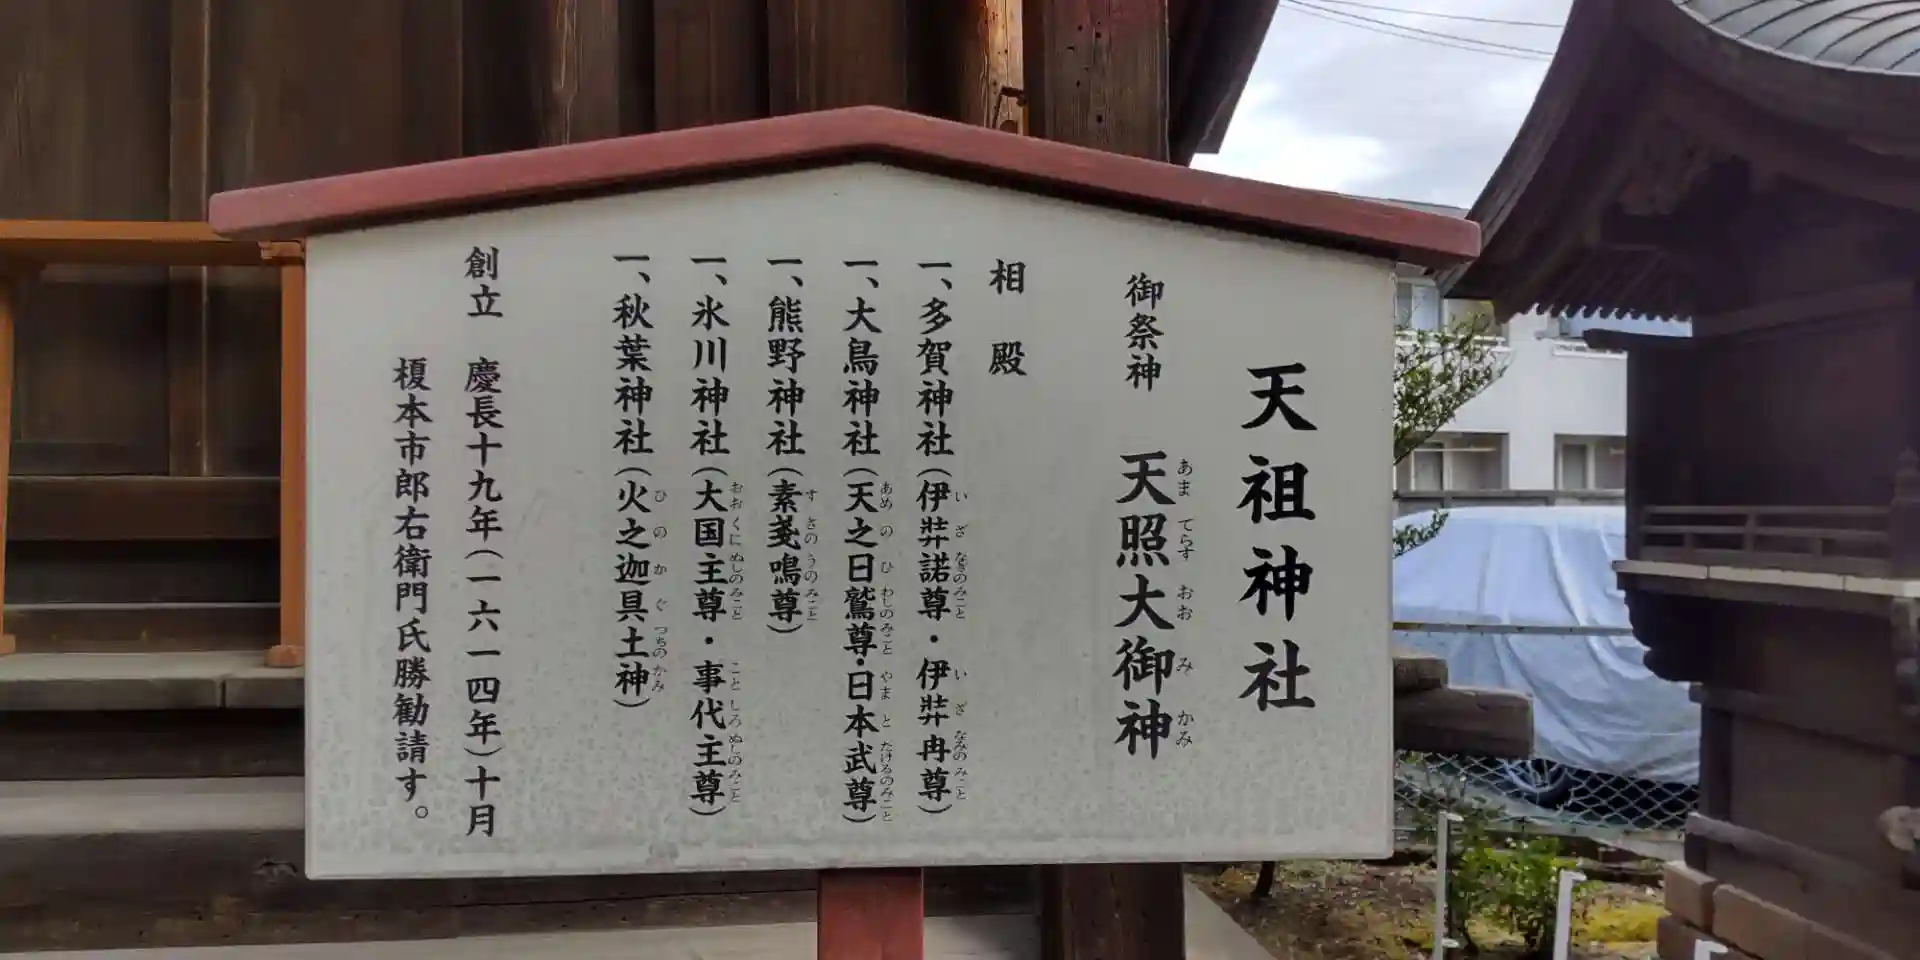 天祖神社
御祭神 天照大御神
相殿
一、多賀神社（伊弉諾尊・伊弉冉尊）
一、大鳥神社（天之日鷲尊・日本武尊）
一、熊野神社（素戔鳴尊）
一、氷川神社（大国主尊・事代主尊）
一、秋葉神社（火之迦具土神）
創立 慶長十九年（一六一四年）十月
榎本市郎右衛門氏勝勧請す。